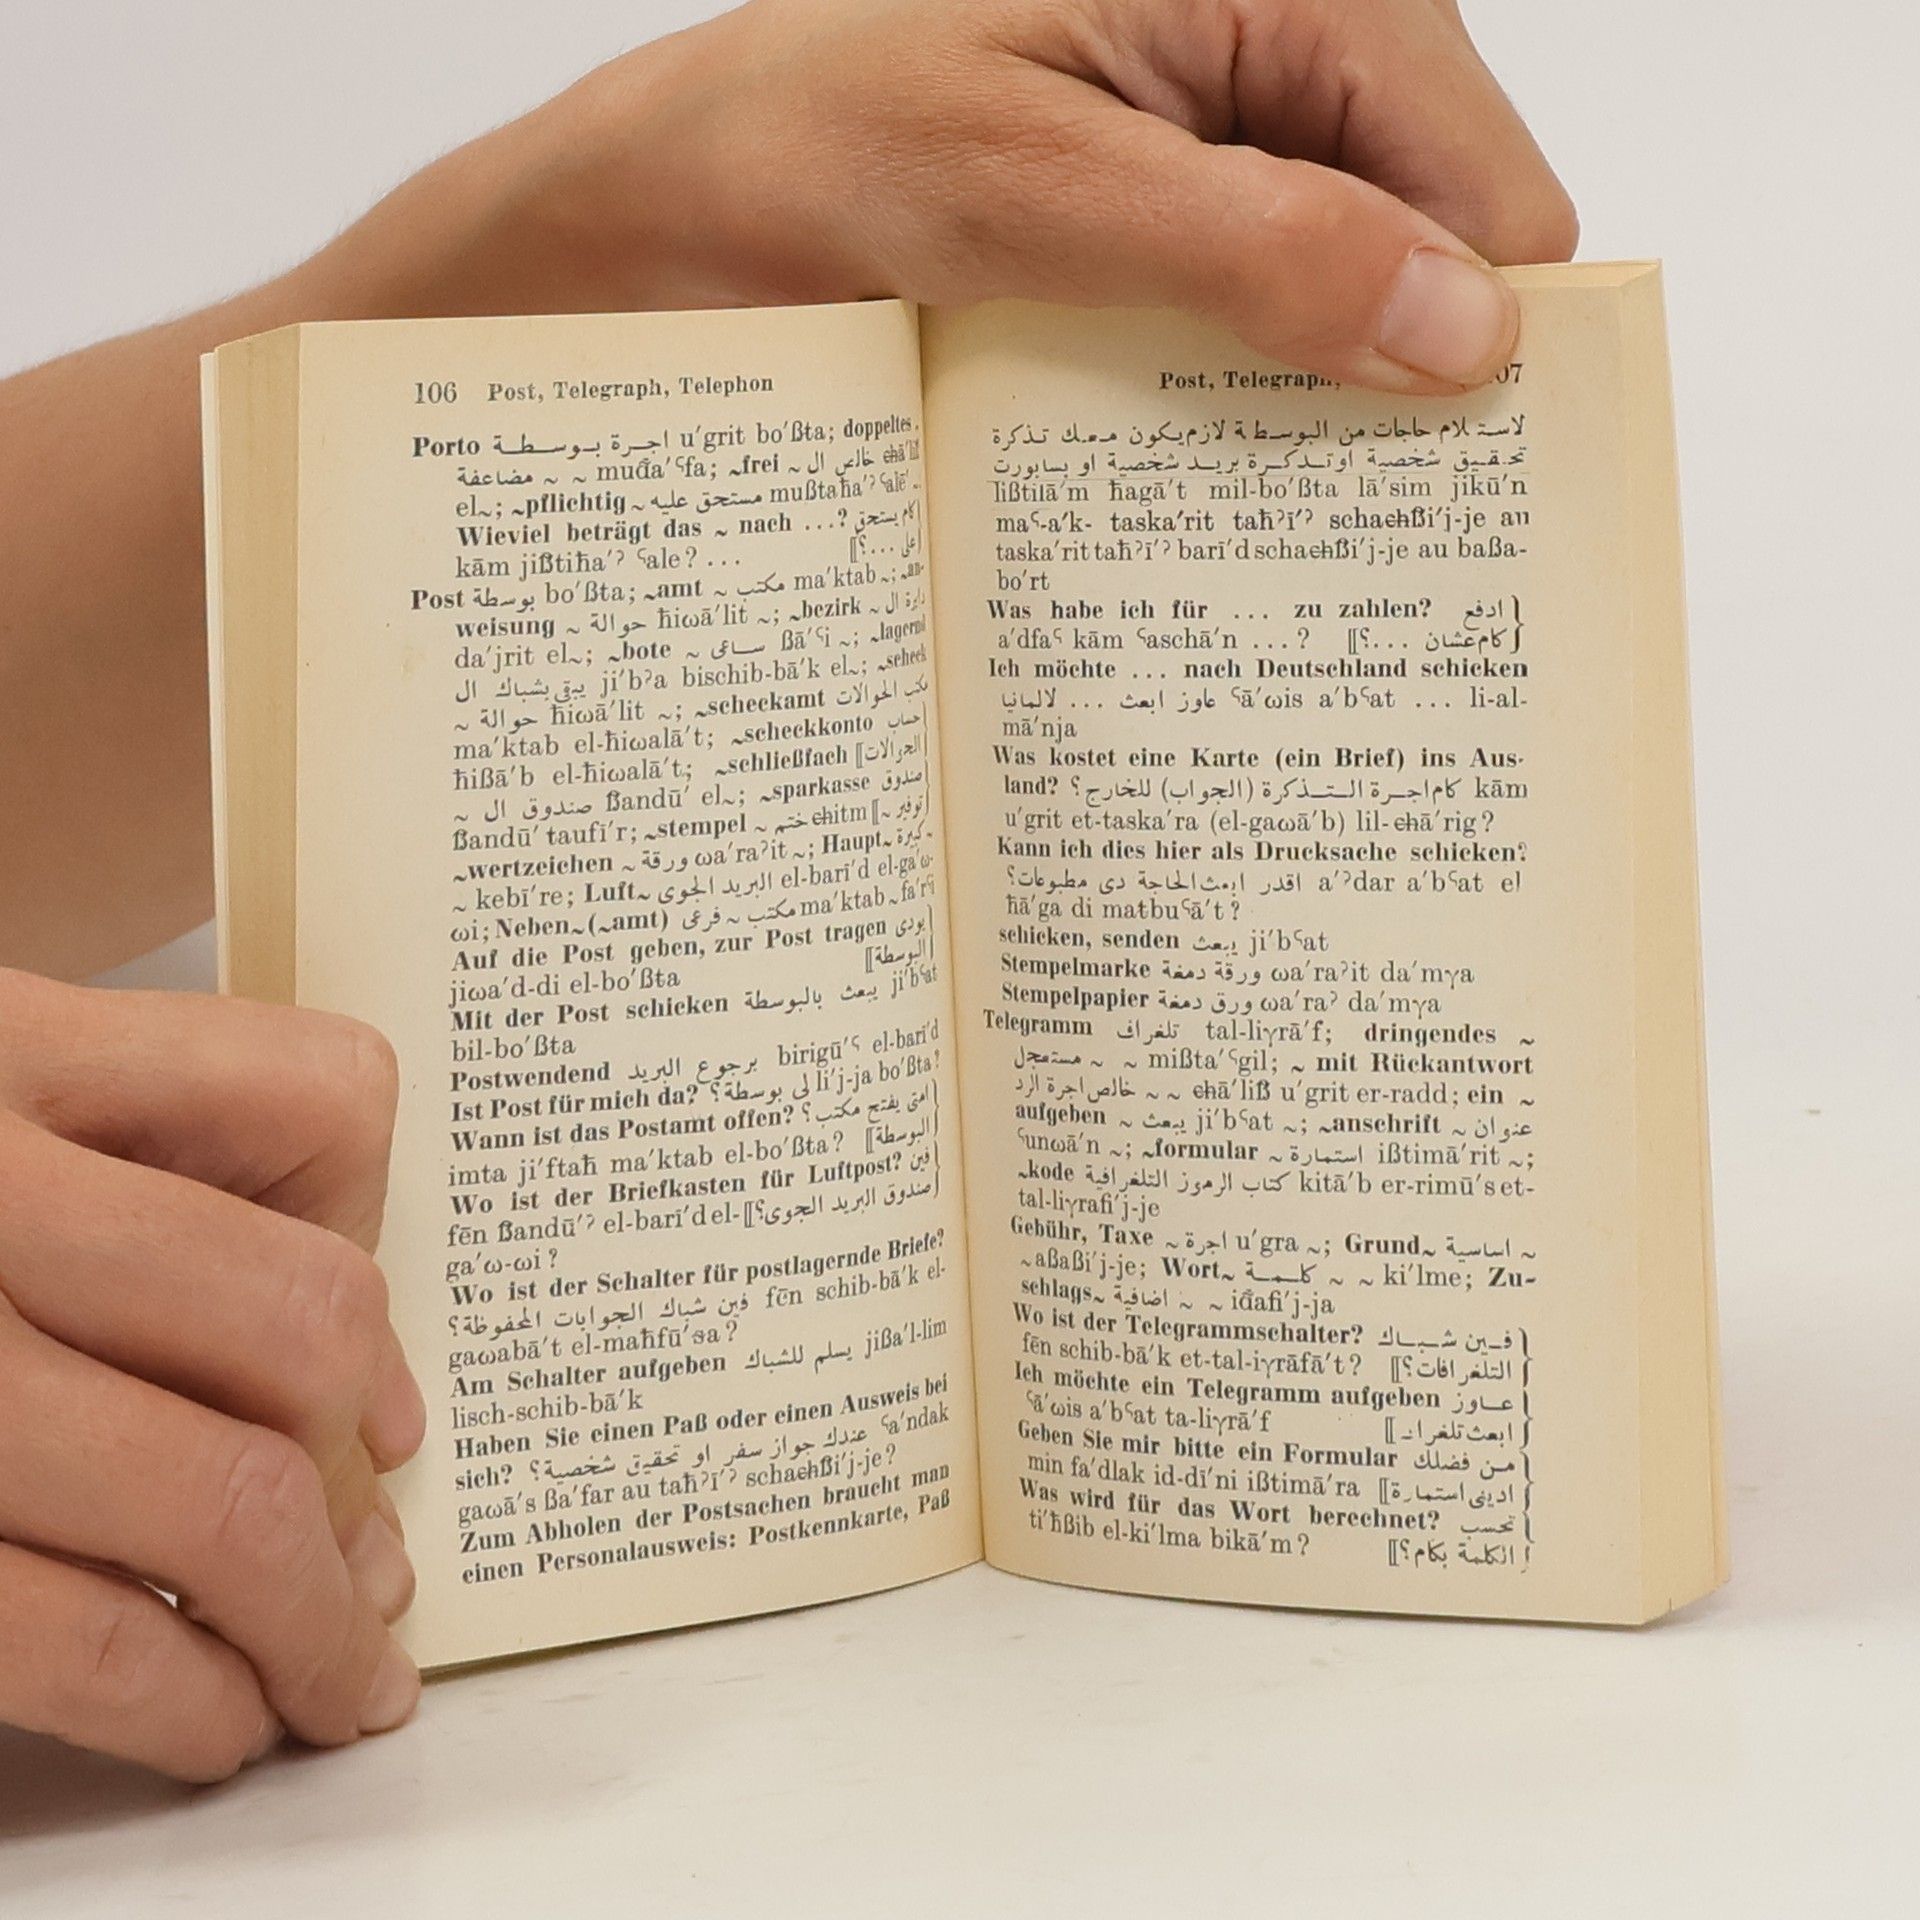 106 Post, Telegraph, Telephon
Porto اجرة بوسطة u′grit bo′ßta; doppeltes
مضاعفة ~ ~ muđa′ˤfa; ~frei ~ خالص ال
el~; ~pflichtig ~ مستحق عليه mußtaħa′ʾ ˤalē′
Wieviel beträgt das ~ nach ...? كام يستحق
kām jißtiħa′ʾ ˤale? ... على ...؟
Post بوسطة bo′ßta; ~amt ~ مكتب ma′ktab ~; ~an-
weisung ~ حوالة ħiωā′lit ~; ~bezirk ~ دايرة ال
da′jrit el~; ~bote ~ ساعى ßā′ˤi ~; ~lagernd
يبقى بشباك ال ji′bʾa bischib-bā′k el~; ~scheck
~ حوالة ħiωā′lit ~; ~scheckamt مكتب الحوالات
ma′ktab el-ħiωalā′t; ~scheckkonto حساب
ħißā′b el-ħiωalā′t; ~schließfach [[الحوالات
~ صندوق ال ßandū′ el~; ~sparkasse صندوق
ßandū′ taufī′r; ~stempel ~ ختم chitm [[~ توفير
~wertzeichen ~ ورقة ωa′raʾit ~; Haupt~ كبيرة
~ kebī′re; Luft~ البريد الجوى el-barī′d el-ga′ω-
ωi; Neben~(~amt) مكتب ~ فرعى ma′ktab ~ fa′rˤi
Auf die Post geben, zur Post tragen يودى
jiωa′d-di el-bo′ßta [[البوسطة
Mit der Post schicken يبعث بالبوسطة ji′bˤat
bil-bo′ßta
Postwendend برجوع البريد birigū′ˤ el-barī′d
Ist Post für mich da? لى بوسطة؟ li′j-ja bo′ßta?
Wann ist das Postamt offen? امتى يفتح مكتب؟
imta ji′ftaħ ma′ktab el-bo′ßta? [[البوسطة
Wo ist der Briefkasten für Luftpost? فين
fēn ßandū′ʾ el-barī′d el-[[صندوق البريد الجوى؟
ga′ω-ωi?
Wo ist der Schalter für postlagernde Briefe?
فين شباك الجوابات المحفوظة؟ fēn schib-bā′k el-
gaωabā′t el-maħfū′sa?
Am Schalter aufgeben يسلم للشباك jißa′l-lim
lisch-schib-bā′k
Haben Sie einen Paß oder einen Ausweis bei
sich? عندك جواز سفر او تحقيق شخصية؟ ˤa′ndak
gaωā′s ßa′far au taħʾī′ʾ schachßi′j-je?
Zum Abholen der Postsachen braucht man
einen Personalausweis: Postkennkarte, Paß
Post, Telegraph,
لاستلام حاجات من البوسطة لازم يكون معك تذكرة
تحقيق شخصية او تذكرة بريد شخصية او بسابورت
lißtilā′m ħagā′t mil-bo′ßta lā′sim jikū′n
maˤ-a′k- taska′rit taħʾī′ʾ schachßi′j-je au
taska′rit taħʾī′ʾ barī′d schachßi′j-je au baßa-
bo′rt
Was habe ich für ... zu zahlen? ادفع
a′dfaˤ kām ˤaschā′n ...? [[كام عشان ...؟
Ich möchte ... nach Deutschland schicken
عاوز ابعث ... لالمانيا ˤā′ωis a′bˤat ... li-al-
mā′nja
Was kostet eine Karte (ein Brief) ins Aus-
land? كام اجرة التذكرة (الجواب) للخارج؟ kām
u′grit et-taska′ra (el-gaωā′b) lil-chā′rig?
Kann ich dies hier als Drucksache schicken?
اقدر ابعث الحاجة دى مطبوعات؟ a′ʾdar a′bˤat el
ħā′ga di matbuˤā′t?
schicken, senden يبعث ji′bˤat
Stempelmarke ورقة دمغة ωa′raʾit da′mγa
Stempelpapier ورق دمغة ωa′raʾ da′mγa
Telegramm تلغراف tal-liγrā′f; dringendes ~
مستعجل ~ ~ mißta′ˤgil; ~ mit Rückantwort
خالص اجرة الرد ~ ~ chā′liß u′grit er-radd; ein ~
aufgeben ~ يبعث ji′bˤat ~; ~anschrift ~ عنوان
ˤunωā′n ~; ~formular ~ استمارة ißtimā′rit ~;
~kode كتاب الرموز التلغرافية kitā′b er-rimū′s et-
tal-liγrafi′j-je
Gebühr, Taxe ~ اجرة u′gra ~; Grund~ اساسية ~
~ aßaßi′j-je; Wort~ كلمة ~ ~ ki′lme; Zu-
schlags~ اضافية ~ ~ iđafi′j-ja
Wo ist der Telegrammschalter? فين شباك
fēn schib-bā′k et-tal-iγrāfā′t? [[التلغرافات؟
Ich möchte ein Telegramm aufgeben عاوز
ˤā′ωis a′bˤat ta-liγrā′f [[ابعث تلغراف
Geben Sie mir bitte ein Formular من فضلك
min fa′dlak id-dī′ni ißtimā′ra [[ادينى استمارة
Was wird für das Wort berechnet? تحسب
ti′ħßib el-ki′lma bikā′m? [[الكلمة بكام؟